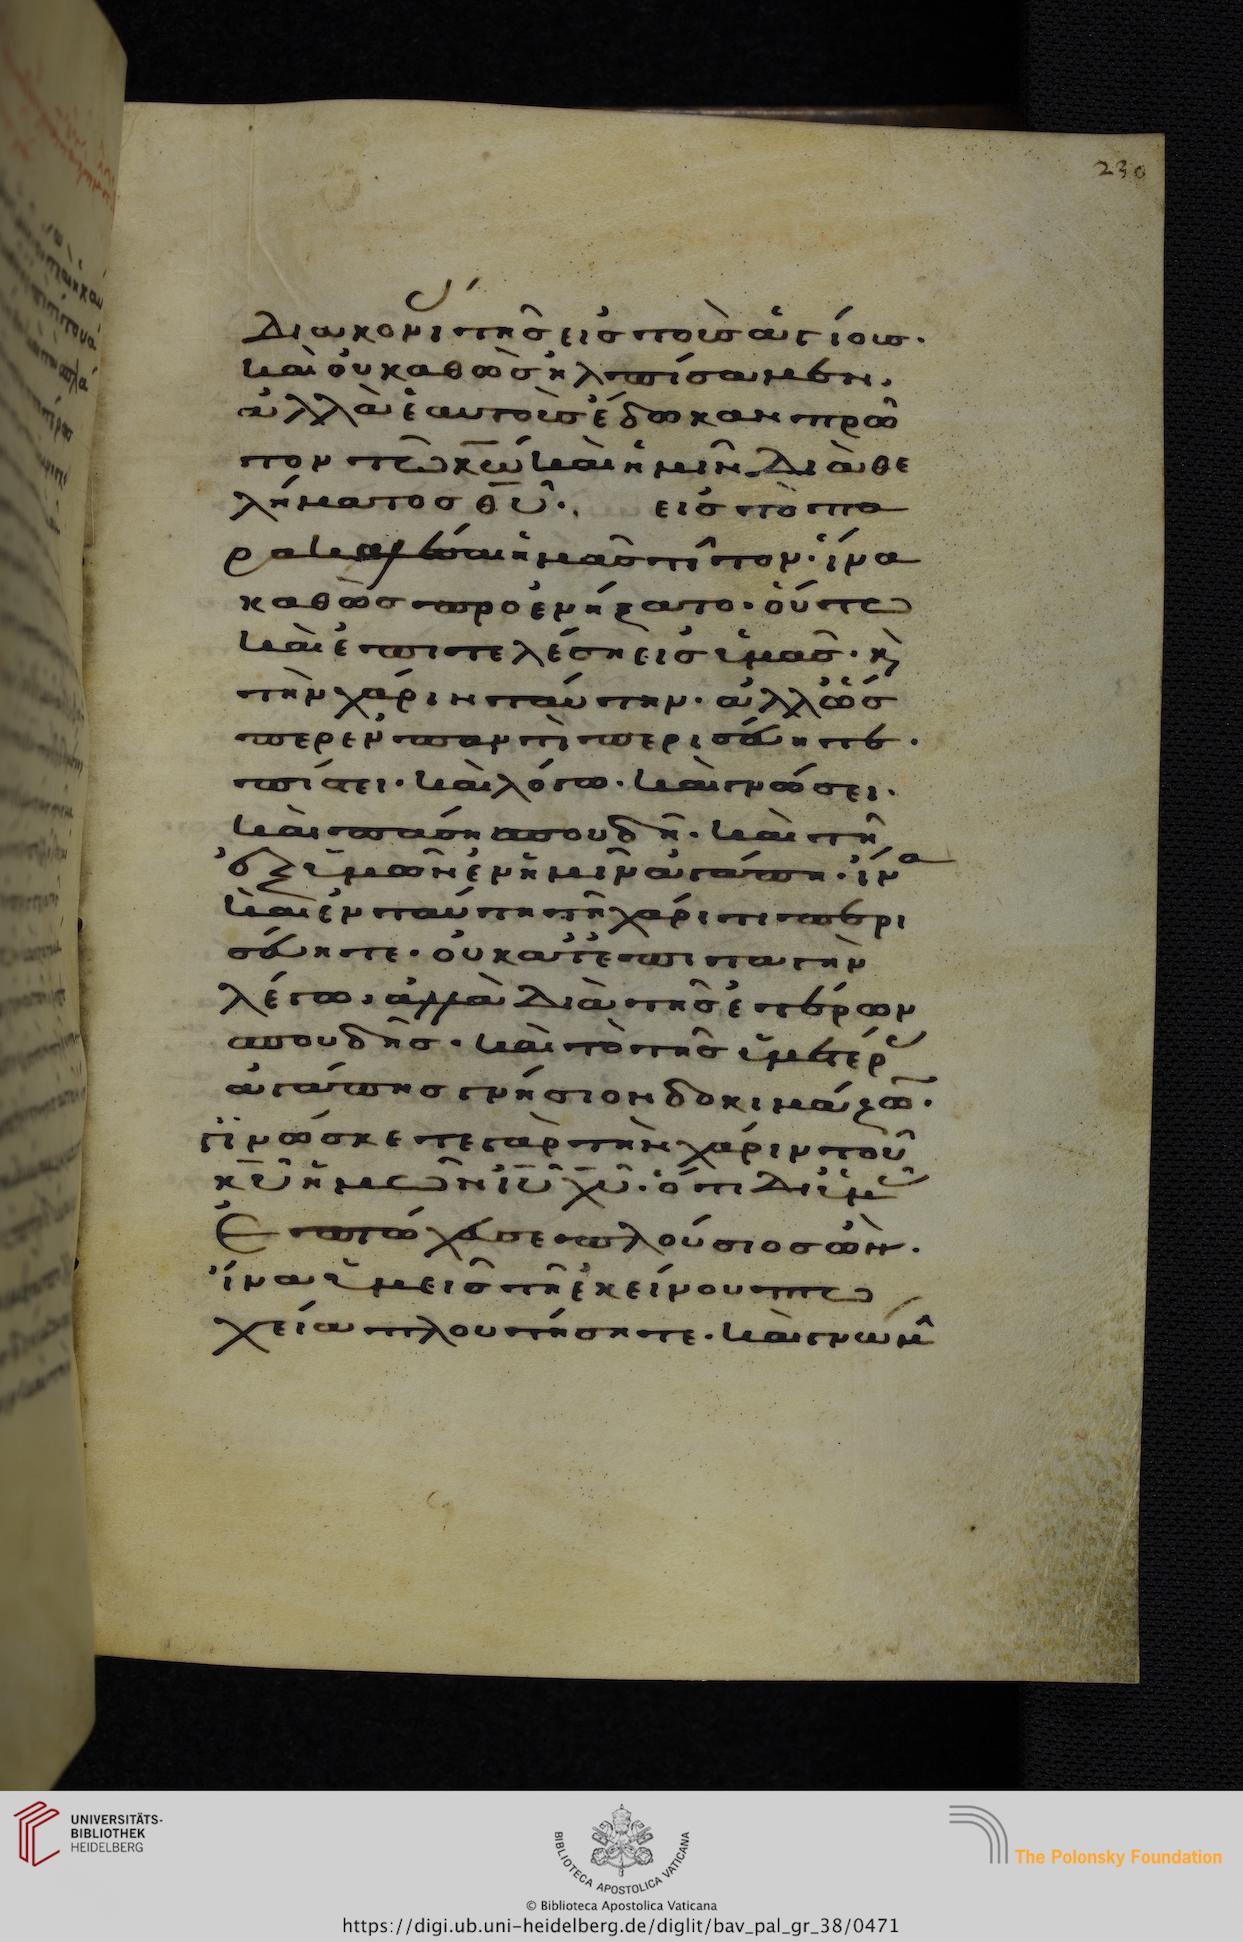 230
διακονί τῆς εἰς τοὺς ἁγίους·
καὶ οὐ καθὼς ἠλπίσαμεν,
ἀλλὰ ἑαυτοὺς ἔδωκαν πρῶ
τον τῶ κ̅ω̅ καὶ ἡμῖν διὰ θε
λήματος θ̅υ̅· εἰς τὸ πα
ρακαλέσαι ἡμᾶς τίτον· ἵνα
καθὼς προενήρξατο· οὕτω
καὶ ἐπιτελέση εἰς ὑμᾶς· κ̀
τὴν χάριν ταύτην· ἀλλ ὥς
περ ἐν παντὶ περισσεύητε·
πίστει· καὶ λόγω· καὶ γνώσει·
καὶ πάση σπουδῆ· καὶ τῆ
ἐξ ὑμῶν ἐν ἡμῖν ἀγάπη· ἵνα
καὶ ἐν ταύτη τῆ χάριτι περι
σεύητε· οὐ κατ ἐπιταγὴν
λέγω, ἀλλὰ διὰ τῆς ἑτέρων
σπουδῆς· καὶ τὸ τῆς ὑμετέρ
ἀγάπης γνήσιον δοκιμάζω̅·
γϊνώσκετε γὰρ τὴν χάριν τοῦ
κ̅υ̅ ἡμῶν ι̅υ̅ χ̅υ̅· ὅτι δι ὑμ
ἐπτώχευσε πλούσιος ὢν·
ἵνα ὑμεῖς τῆ ἐκείνου πτω
χεία πλουτήσητε· καὶ γνώμ
UNIVERSITÄTS-
BIBLIOTHEK
HEIDELBERG
BIBLIOTECA APOSTOLICA VATICANA
The Polonsky Foundation
© Biblioteca Apostolica Vaticana
https://digi.ub.uni-heidelberg.de/diglit/bav_pal_gr_38/0471